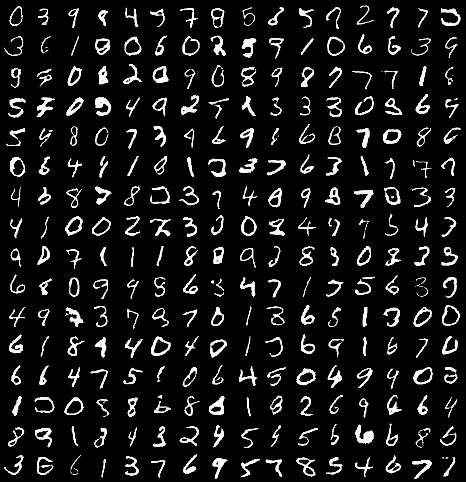 0 3 9 8 4 9 7 8 5 8 5 7 2 7 7 5
3 6 1 0 0 6 0 2 5 9 1 0 6 6 3 9
9 8 0 8 2 0 9 0 8 9 8 7 7 7 1 8
5 7 0 9 4 9 2 5 1 3 3 3 0 8 6 9
5 4 8 0 7 3 4 6 9 1 6 8 7 0 8 6
0 6 4 4 1 8 1 3 7 6 3 1 7 7 7
4 6 8 7 8 0 3 7 4 8 9 8 7 0 3 3
4 1 0 0 2 2 3 0 0 8 4 9 7 5 4 7
9 0 7 1 1 1 8 8 9 3 8 3 0 8 3 3
6 8 0 9 9 8 6 3 4 7 1 5 5 6 3 9
4 9 7 3 7 9 7 0 1 3 6 5 1 3 0 0
6 1 8 9 4 0 4 0 1 5 6 9 1 6 7 0
6 6 4 7 5 1 0 6 4 5 0 4 9 9 0 2
1 0 0 8 8 6 8 6 1 8 2 6 9 6 6 4
8 9 1 3 4 3 2 4 5 4 5 6 6 6 8 6
3 6 6 1 3 7 6 9 5 7 8 5 4 6 7 7